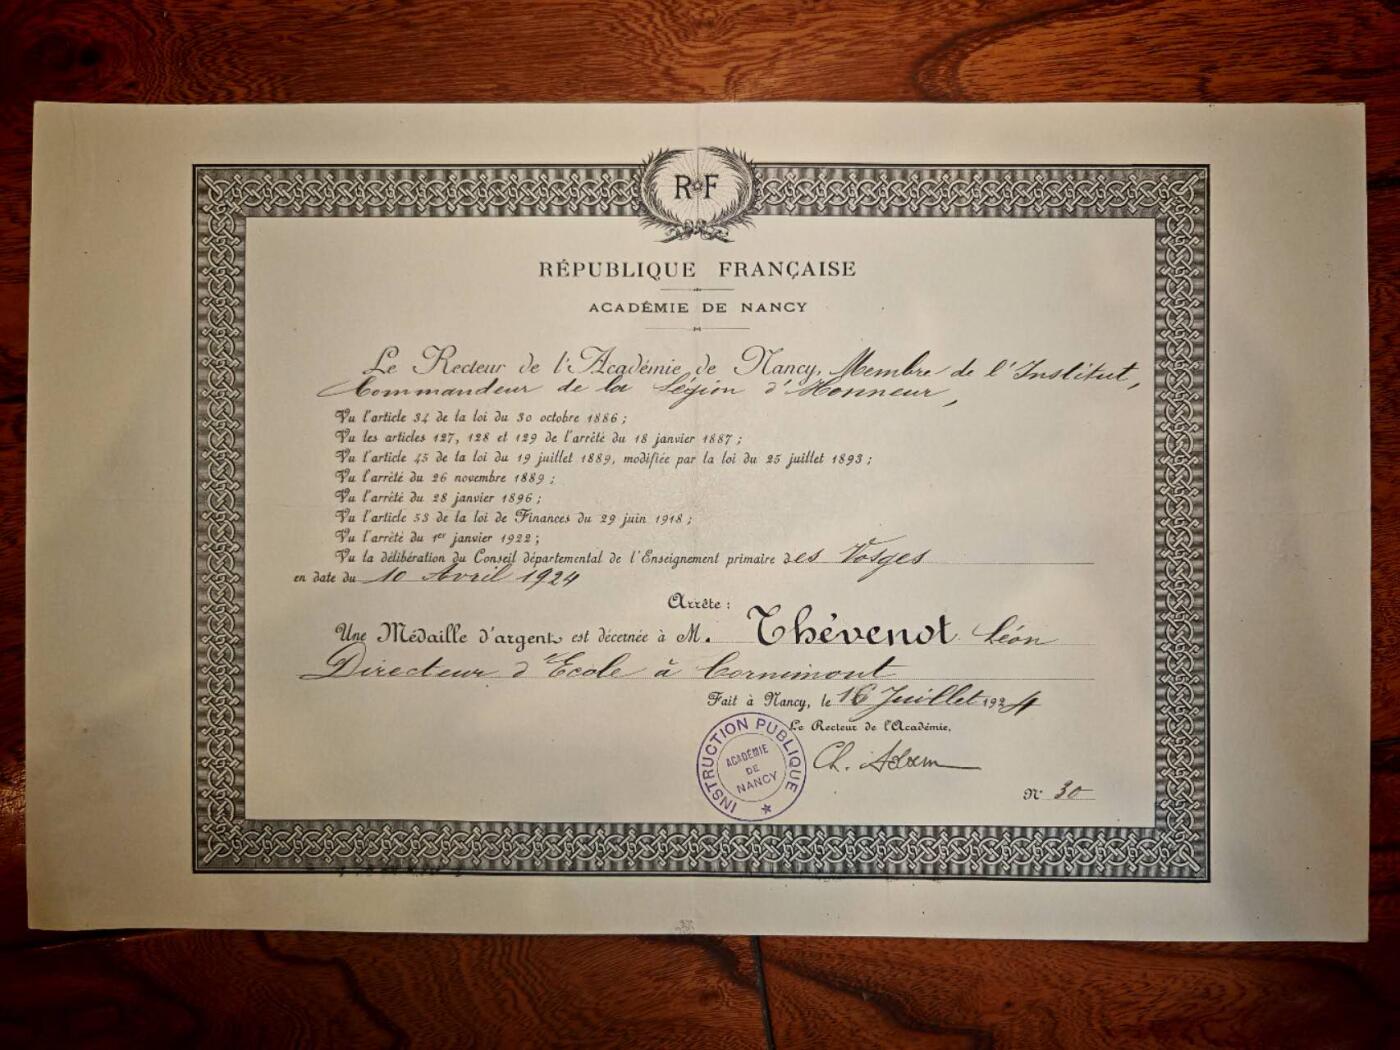 R F
RÉPUBLIQUE FRANÇAISE
ACADÉMIE DE NANCY
Le Recteur de l'Académie de Nancy, Membre de l'Institut,
Commandeur de la Légion d'Honneur,
Vu l'article 34 de la loi du 30 octobre 1886 ;
Vu les articles 127, 128 et 129 de l'arrêté du 18 janvier 1887 ;
Vu l'article 45 de la loi du 19 juillet 1889, modifiée par la loi du 25 juillet 1893 ;
Vu l'arrêté du 26 novembre 1889 ;
Vu l'arrêté du 28 janvier 1896 ;
Vu l'article 53 de la loi de Finances du 29 juin 1918 ;
Vu l'arrêté du 1er janvier 1922 ;
Vu la délibération du Conseil départemental de l'Enseignement primaire des Vosges
en date du 10 Avril 1924
Arrête :
Une Médaille d'argent est décernée à M. Thévenot Léon
Directeur d'Ecole à Cornimont
Fait à Nancy, le 16 Juillet 1924
Le Recteur de l'Académie,
Ch. Adam
INSTRUCTION PUBLIQUE
ACADÉMIE
DE
NANCY
N° 30